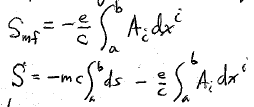 S_mf = -e/c ∫_a^b A_i dx^i
S = -mc ∫_a^b ds - e/c ∫_a^b A_i dx^i